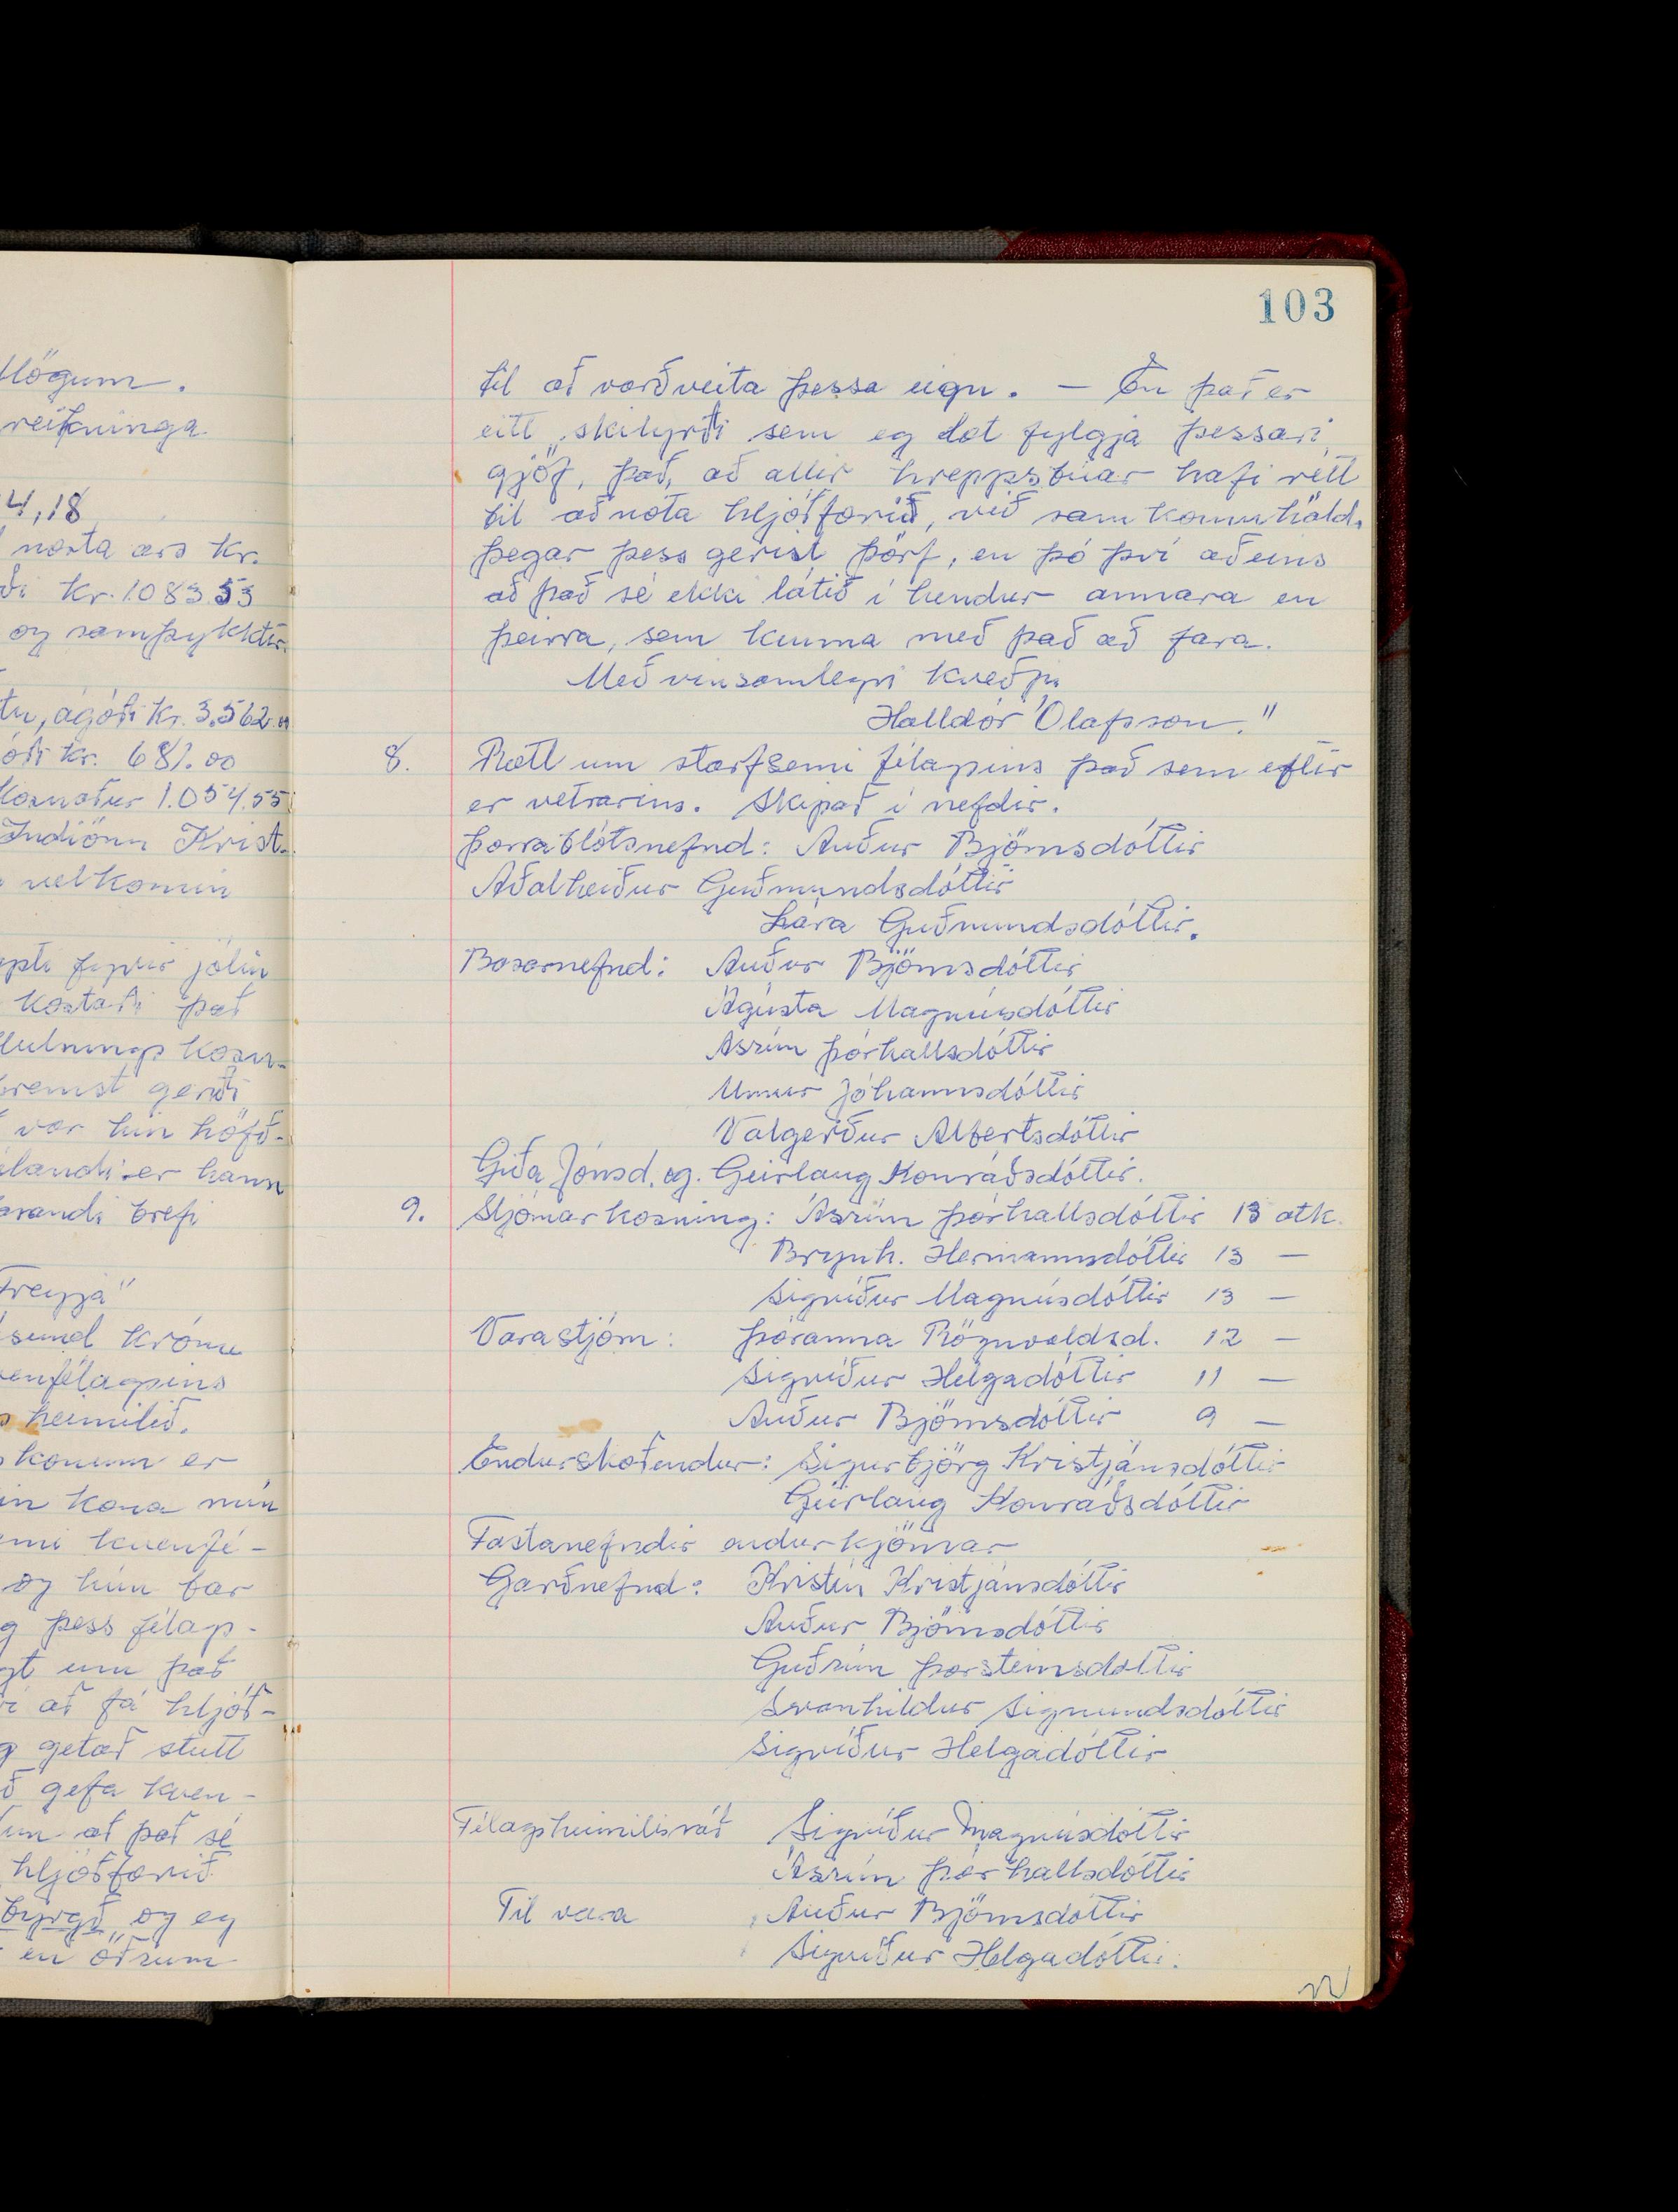 lögum.
reikninga
4,18
næsta árs kr.
ði kr. 1083.53
og samþykktir.
tu, ágóði kr. 3.562.00
óði kr. 681.00
Kosnaður 1.054.55
Indíönu Krist-
velkomin
fyrir jólin
kostaði það
hlutnings kosn-
fremst gerði
var hún höfð-
landi er hann
arandi bréfi
Freyja"
sund krónu
venfélagsins
heimilið.
konum er
in kona mín
emi kvenfé-
og hún bar
g þess félags-
gt um það
að fá hljóð-
getað stutt
ð gefa kven-
um að það sé
hljóðfærið
byrgð" og eg
en öðrum
103
til að varðveita þessa eign. — En það er
eitt "skilyrði sem eg læt fylgja þessari
gjöf, það, að allir hreppsbúar hafi rétt
til að nota hljóðfærið, við samkomuhöld,
þegar þess gerist þörf, en þó því aðeins
að það sé ekki látið í hendur annara en
þeirra, sem kunna með það að fara.
Með vinsamlegri kveðju
Halldór Ólafsson."
8. Rætt um starfsemi félagsins það sem eftir
er vetrarins. Skipað í nefdir.
Þorrablótsnefnd: Auður Björnsdóttir
Aðalheiður Guðmundsdóttir
Lára Guðmundsdóttir.
Basarnefnd: Auður Björnsdóttir
Ágústa Magnúsdóttir
Ásrún Þórhallsdóttir
Unnur Jóhannsdóttir
Valgerður Albertsdóttir
Gíða Jónsd. og. Geirlaug Konráðsdóttir.
9. Stjórnarkosning: Ásrún Þórhallsdóttir 13 atk.
Brynh. Hermannsdóttir 13 —
Sigríður Magnúsdóttir 13 —
Varastjórn: Þóranna Rögnvaldsd. 12 —
Sigríður Helgadóttir 11 —
Auður Björnsdóttir 9 —
Endurskoðendur: Sigurbjörg Kristjánsdóttir
Geirlaug Konráðsdóttir
Fastanefndir endurkjörnar
Garðnefnd: Kristín Kristjánsdóttir
Auður Björnsdóttir
Guðrún Þorsteinsdóttir
Svanhildur Sigmundsdóttir
Sigríður Helgadóttir
Félagsheimilisráð Sigríður Magnúsdóttir
Ásrún Þórhallsdóttir
Til vara Auður Björnsdóttir
Sigríður Helgadóttir.